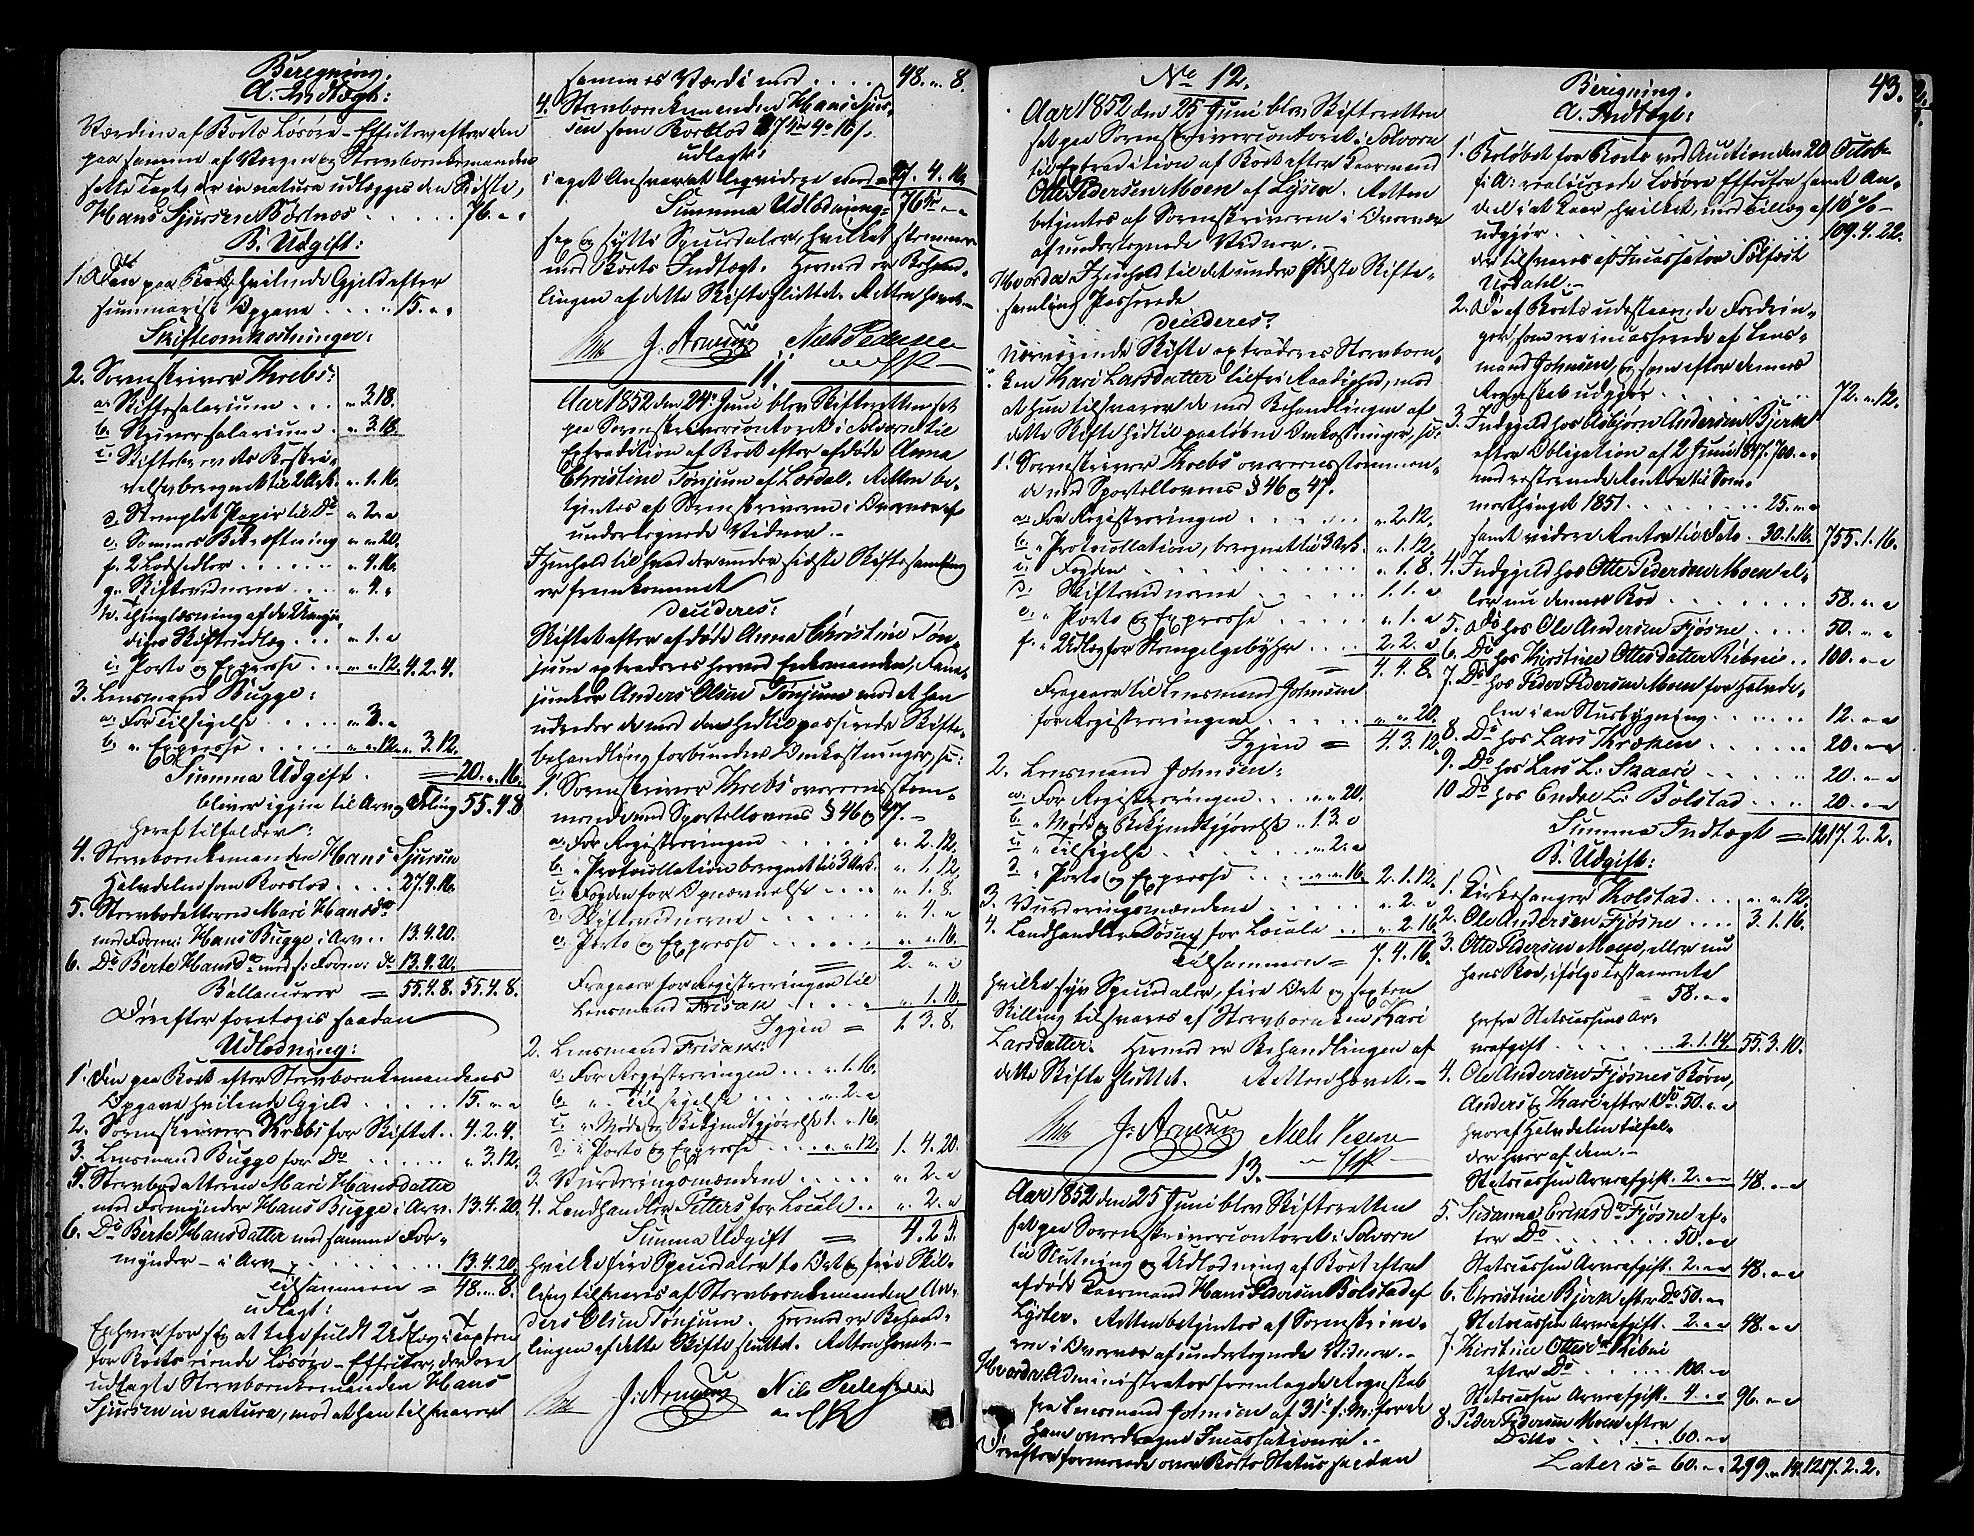 Beregning.
A. Indtægt:
Værdien af Boets Løsøre-Effecter, efter den
paa samme af Vergen og Sterboenkemanden
satte Taxt, der in natura udlægges den Sidste,
Hans Sjursen Børtnæs . . . . . 76. " "
B. Udgift:
1. Den paa Boet hvilende Gjeld efter
summarisk Opgave . . . . 15. " "
Skifteomkostninger:
2. Sorenskriver Krebs:
a. Skiftesalarium . . . " 3.18.
b. Skriversalarium . . " 3.18.
c. Skiftebrevets Beskri-
velse, beregnet til 2 Ark. . " 1.16.
d. Stemplet Papir til Do " 2. "
e. Sammes Bekræftning " " 20.
f. 2 Lodsedler . . . . . " 4.16.
g. Skiftevidnerne . . . " 4. "
h. Thinglæsning af det
dige Skifteudlæg . . . " 1. "
i. Porto og Expresse . . . " " 12. 4.2.4.
3. Lensmand Bugge:
a. For Tilsigelse . . . . . " 3. "
b. " Expresse . . . . . " " 12. " 3.12.
Summa Udgift . = 20. " 16.
bliver igjen til Arv og Deling 55.4.8
heraf tilfalder:
4. Sterboenkemanden Hans Sjursen
Halvdelen som Boeslod . . . . 27.4.16.
5. Sterbodatteren Mari Hansdr
med Form: Hans Bugge i Arv . . 13.4.20.
6. Do Berte Hansdr med s: Form: do 13.4.20.
Ballancerer = 55.4.8. 55.4.8.
Derefter foretoges saadan
Udlodning:
1. Den paa Boet efter Sterboenkemandens
Opgave hvilende Gjeld . . . . . 15. " "
2. Sorenskriver Krebs for Skiftet . . 4.2.4.
3. Lensmand Bugge for Do . . . . . " 3.12.
5. Sterbodatteren Mari Hansdatter
med Formynder Hans Bugge i Arv. 13.4.20.
6. Do Berte Hansdatter med samme For-
mynder - i Arv . . . . . . . 13.4.20.
Tilsammen = 48. " 8.
udlagt:
Enhver for sig at tage fuldt Udlæg i Taxten
for Boets eiende Løsøre-Effecter, der ere
udlagte Sterboenkemanden Hans
Sjursen in natura, mod at han tilsvarer
sammes Værdi med . . . . 48. " 8.
4. Sterboenkemanden Hans Sjur-
sen som Boeslod 27 Spd 4 " 16 s.
udlagt:
i eget Ansvar at liqvidere med 27.4.16.
Summa Udlodning = 76 Spd " "
sex og sytti Speciedaler, hvilket stemmer
med Boets Indtægt. Hermed er Behand-
lingen af dette Skifte sluttet. Retten hævet.-
Krebs J. Arnesen Niels Pedersen
11.
Aar 1852 den 24de Juni blev Skifteretten sat
paa Sorenskrivercontoret i Solvorn til
Extradition af Boet efter afdøde Anna
Christine Tønjum af Lærdal. Retten be-
tjentes af Sorenskriveren i Overvær af
undertegnede Vidner.-
I Henhold til hvad der under sidste Skiftesamling
er fremkommet
decideres:
Skiftet efter afdøde Anna Christine Tøn-
jum extraderes hermed Enkemanden, Fane-
junker Anders Olsen Tønjum mod at han
udreder de med den hidtil passerede Skifte-
behandling forbundne Omkostninger, s:
1. Sorenskriver Krebs overeensstem-
mende med Sportelloven § 46 og 47.-
a. For Registreringen . . . . . . " 2.12.
b. " Protocollation beregnet til 3 Ark. " 1.12.
c. Fogden for Opnævnelse . . . . " 1.8.
d. Skiftevidnerne . . . . . . . " 4. "
e. Porto og Expresse . . . . . . " " 16.
= 2. " "
Fragaaer for Registreringen til
Lensmand Frisak . . . . . " 1.16.
Igjen = 1.3.8.
2. Lensmand Frisak:
a. For Registreringen . . . " 1.16.
b. " Tilsigelse . . . . . " 2. "
c. " Møde og Bekjendtgjørelse 1. " 16.
d. " Porto og Expresse . . . " " 12. 1.4.20.
3. Vurderingsmændene . . . . . " 2. "
4. Landhandler Petters for Locale . . " 2. "
Summa Udgift = 4.2.4.
hvilke fire Speciedaler to Ort og fire Skil-
ling tilsvares af Sterboenkemanden An-
ders Olsen Tønjum. Hermed er Behand-
lingen af dette Skifte sluttet. Retten hævet.-
Krebs J. Arnesen Niels Pedersen
No 12.
Aar 1852 den 25 Juni blev Skifteretten
sat paa Sorenskrivercontoret i Solvorn
til Extradition af Boet efter Kaarmand
Otte Pedersen Moen af Lyster. Retten
betjentes af Sorenskriveren i Overvær
af undertegnede Vidner.-
Hvorda i Henhold til det under sidste Skifte-
samling Passerede
decideres:
Nærværende Skifte extraderes Sterboen-
ken Kari Larsdatter til fri Raadighed, mod
at hun tilsvarer de med Behandlingen af
dette Skifte hidtil paaløbne Omkostninger, s:
1. Sorenskriver Krebs overeensstemmen-
de med Sportelloven § 46 og 47.
a. For Registreringen . . . . . . " 2.12.
b. " Protocollation, beregnet til 3 Ark. " 1.12.
c. Fogden . . . . . . . . " 1.8.
d. Skiftevidnerne . . . . . . 1.1. "
e. " Porto og Expresse . . . . . " 1. "
f. " Udlæg for Stempelgebyhr . . . . 2.2. "
= 4.4.8.
Fragaaer til Lensmand Johnsen
for Registreringen . . . . . " " 20.
Igjen = 4.3.12.
2. Lensmand Johnsen:
a. For Registreringen . . . . " " 20.
b. " Møde og Bekjendtgjørelse . . 1.3. "
c. " Tilsigelse . . . . . . " 2. "
d. " Porto og Expresse . . . . . " " 16. 2.1.12.
3. Vurderingsmændene . . . . . . " 2. "
4. Landhandler Døsen for Locale . . " 2.16.
Tilsammen = 7.4.16.
hvilke syv Speciedaler, fire Ort og sexten
Skilling tilsvares af Sterboenken Kari
Larsdatter. Hermed er Behandlingen af
dette Skifte sluttet. Retten hævet.-
Krebs J. Arnesen Niels Pedersen
13.
Aar 1852 den 25 Juni blev Skifteretten
sat paa Sorenskrivercontoret i Solvorn
til Slutning og Udlodning af Boet efter
afdøde Kaarmand Hans Pedersen Bolstad af
Lyster. Retten betjentes af Sorenskrive-
ren i Overvær af undertegnede Vidner.-
Hvorda Administrator fremlagde Regnskab
fra Lensmand Johnsen af 31te f: M: for de
ham overdragne Incassationer.-
Derefter formerede over Boets Status saadan
43.
Beregning.
A. Indtægt:
1. Beløbet for Boets ved Auction den 20 Octob-
f: A: realiserede Løsøre-Effecter samt An-
del i et Kaar, hvilket, med Tillæg af 16 %
udgjør . . . . . . . . 109.4.22.
der tilsvares af Incassator Belfest
Urdahl.-
2. De af Boets udestaaende Fordrin-
ger som ere incasserede af Lens-
mand Johnsen, og som efter dennes
Regnskab udgjør . . . . . . . . 72. " 12.
3. Indgjeld hos Asbjørn Andersen Bjerk
efter Obligation af 2 Juni 1847. 700. " "
med resterende Renter til Som-
merthinget 1851 . . . . . . . 25. " "
samt videre Renter til Dato . 30.1.16. 755.1.16.
4. Indgjeld hos Otte Pedersen Moen el-
ler nu dennes Boe . . . . . . . 58. " "
5. Do hos Ole Andersen Fjøsne . . . . 50. " "
6. Do hos Kirstine Ottesdatter Kibni . . 100. " "
7. Do hos Peder Pedersen Moen for Halvde-
len i en Stuebygning . . . . . . 12. " "
8. Do hos Lars Kroken . . . . . . 20. " "
9. Do hos Lars L: Skaari . . . . . . 20. " "
10 Do hos Endre L: Bolstad . . . . 20. " "
Summa Indtægt = 1217.2.2.
B. Udgift:
1. Kirkesanger Kolstad . . . . " " 12.
2. Ole Andersen Fjøsne . . . . 3.1.16.
3. Otte Pedersen Moen, eller nu
hans Boe, ifølge Testamente
58. " "
herfra Statscassens Ar-
veafgift . . . . . . . 2.1.14. 55.3.10.
4. Ole Andersen Fjøsnes Børn,
Anders og Kari efter Do 50. " "
hvoraf Halvdelen tilfal-
der hver af dem.-
Statscassen Arveafgift. 2. " " 48. " "
5. Susanna Eriksdr Fjøsne ef-
ter Do . . . . . . . 50. " "
Statscassen Arveafgift. 2. " " 48. " "
6. Christine Bjerk efter Do 50. " "
Statscassen Arveafgift. 2. " " 48. " "
7. Kirstine Ottesdr Kibni
efter Do . . . . . . 100. " "
Statscassen Arveafgift. 4. " " 96. " "
8. Peder Pedersen Moen efter
Ditto . . . . . . 60. " "
Lateris 60. " " 299. " 14. 1217.2.2.